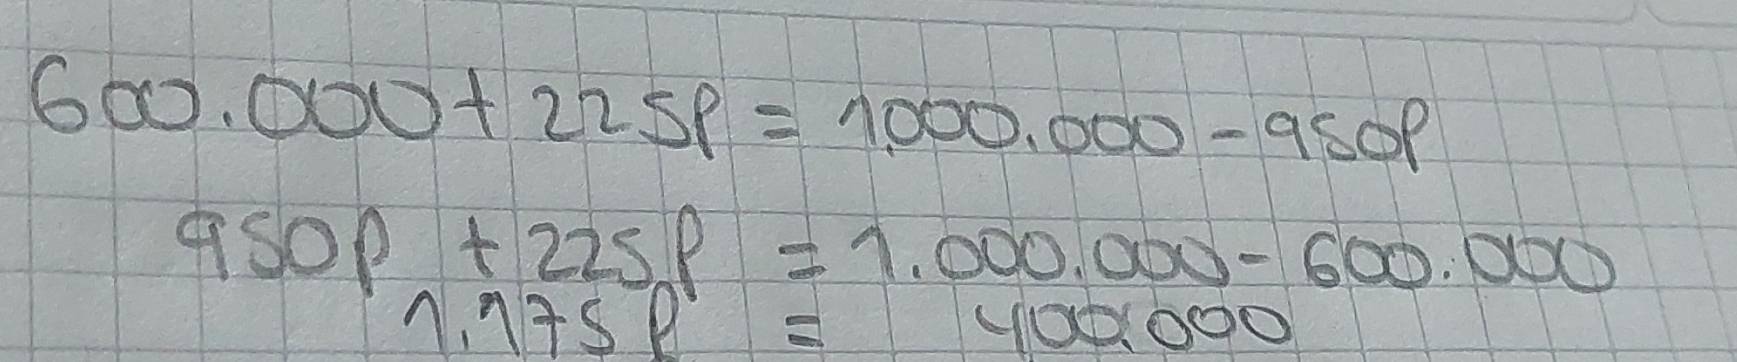 600.000 + 225P = 1.000.000 - 950P
950P + 225P = 1.000.000 - 600.000
1.175P = 400.000